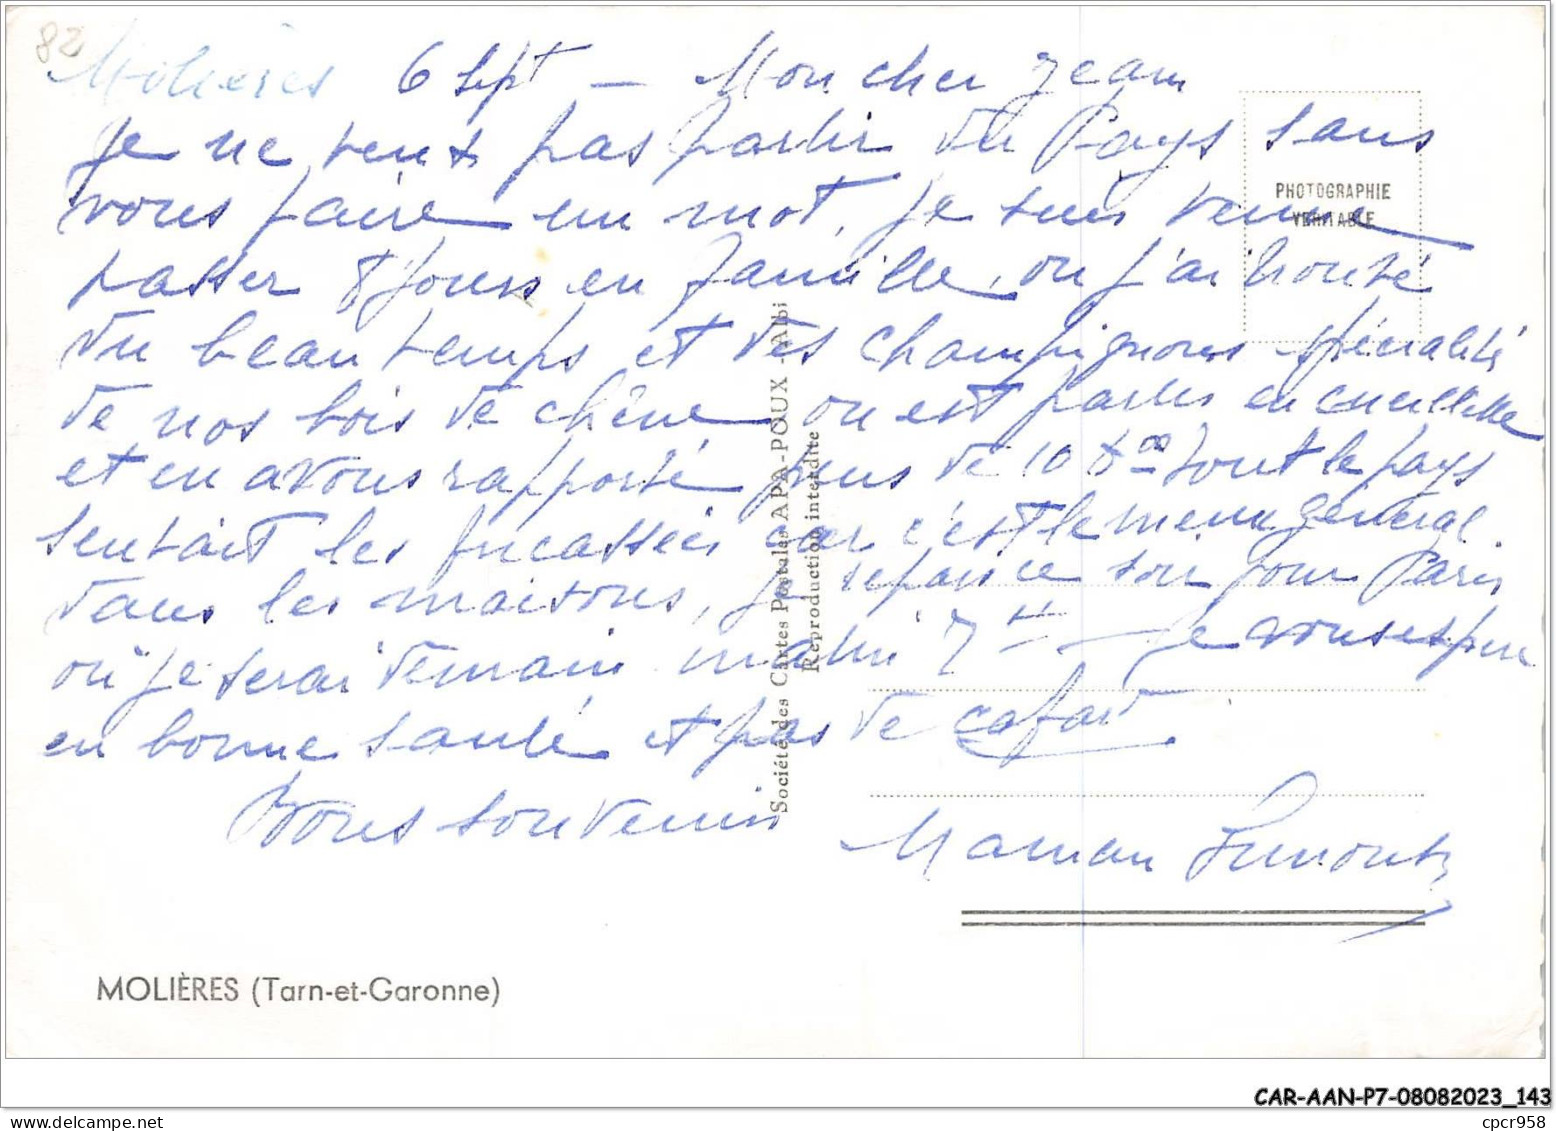 82
Molières 6 Sept — Mon cher Jean
Je ne veux pas partir du Pays sans
vous faire un mot, je suis venue
passer 8 jours en famille, ou j'ai trouvé
du beau temps et des champignons spécialité
de nos bois de chêne on est partis en cueillette
et en avons rapporté plus de 10 tout le pays
sentait les fricassées car c'est le menu général
dans les maisons, je repars ce soir pour Paris
où je serai demain matin 7 — Je vous espère
en bonne santé et pas de cafard
Bons souvenirs
Maman
PHOTOGRAPHIE
VÉRITABLE
Société des Cartes Postales APA-POUX - Albi
Reproduction interdite
MOLIÈRES (Tarn-et-Garonne)
CAR-AAN-P7-08082023_143
cpcr958